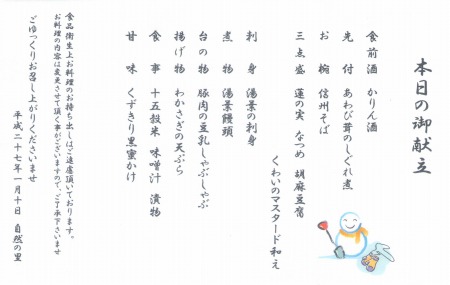 本日の御献立
食前酒 かりん酒
先付 あわび茸のしぐれ煮
お椀 信州そば
三点盛 蓮の実 なつめ 胡麻豆腐
くわいのマスタード和え
刺身 湯葉の刺身
煮物 湯葉饅頭
台の物 豚肉の豆乳しゃぶしゃぶ
揚げ物 わかさぎの天ぷら
食事 十五穀米 味噌汁 漬物
甘味 くずきり黒蜜かけ
食品衛生上お料理のお持ち出しはご遠慮頂いております。
お料理の内容は変更させて頂く事がございますので、ご了承下さいませ
ごゆっくりお召し上がりくださいませ
平成二十七年一月十日 自然の里